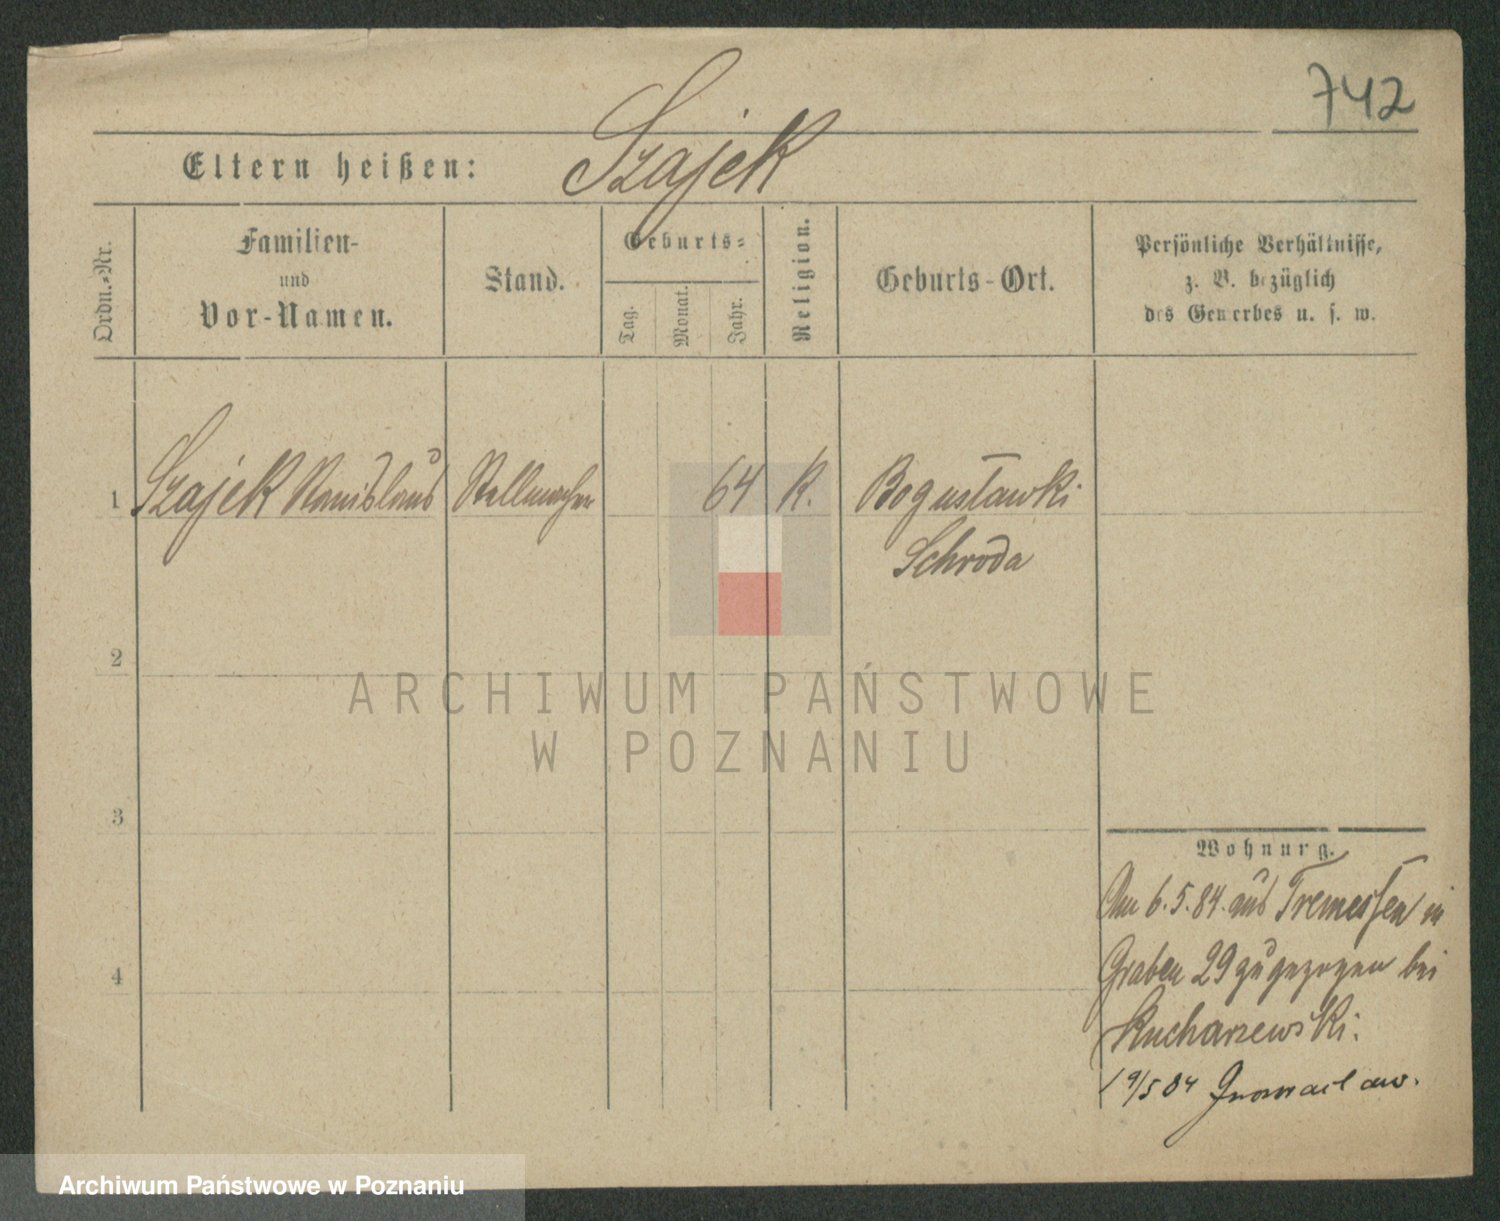 742
Eltern heißen: Szajek
Ordn.-Nr.
Familien-
und
Vor-Namen.
Stand.
Geburts-
Tag.
Monat.
Jahr.
Religion.
Geburts-Ort.
Persönliche Verhältnisse,
z. B. bezüglich
des Gewerbes u. s. w.
1 Szajek Stanislaus Stellmacher 64 K. Bogusławki
Schroda
2
ARCHIWUM PAŃSTWOWE
W POZNANIU
3
Wohnung.
Am 6.5.84. aus Tremessen in
Graben 29 zugezogen bei
4
Kucharzewski.
19/5 84 Inowraclaw.
Archiwum Państwowe w Poznaniu